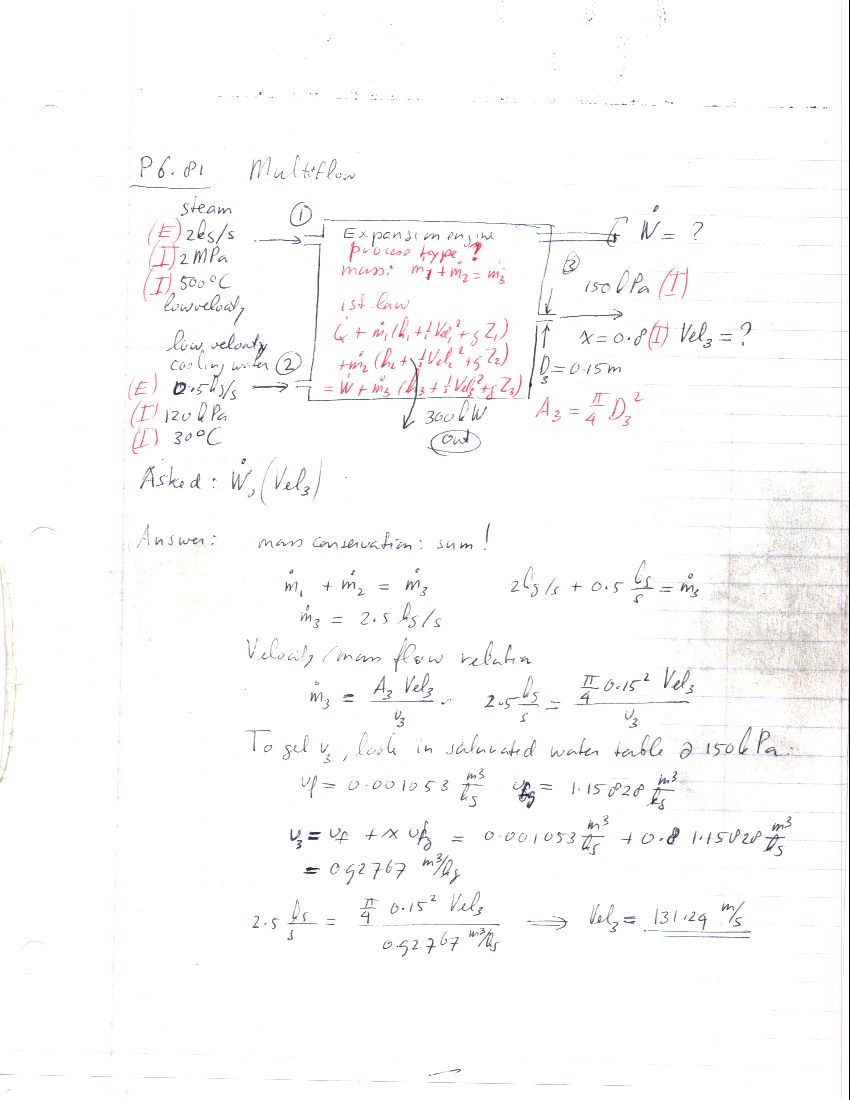 P6.81 Multiflow
steam
(E) 2kg/s
(I) 2MPa
(I) 500°C
low velocity
①
Expansion engine
process type?
mass: ṁ₁ + ṁ₂ = ṁ₃
1st law
Q̇ + ṁ₁(h₁ + ½Vel₁² + gZ₁)
+ṁ₂(h₂ + ½Vel₂² + gZ₂)
= Ẇ + ṁ₃(h₃ + ½Vel₃² + gZ₃)
Ẇ = ?
③
150kPa (I)
x = 0.8 (I) Vel₃ = ?
D₃ = 0.15m
A₃ = π/4 D₃²
low velocity
cooling water ②
(E) 0.5kg/s
(I) 120kPa
(I) 30°C
300kW
out
Asked: Ẇ, (Vel₃)
Answer: mass conservation: sum!
ṁ₁ + ṁ₂ = ṁ₃ 2kg/s + 0.5 kg/s = ṁ₃
ṁ₃ = 2.5 kg/s
Velocity/mass flow relation
ṁ₃ = A₃ Vel₃ / v₃ 2.5 kg/s = π/4 0.15² Vel₃ / v₃
To get v₃, look in saturated water table @ 150kPa:
vf = 0.001053 m³/kg vfg = 1.15828 m³/kg
v₃ = vf + x vfg = 0.001053 m³/kg + 0.8 1.15828 m³/kg
= 0.92767 m³/kg
2.5 kg/s = π/4 0.15² Vel₃ / 0.92767 m³/kg ⟹ Vel₃ = 131.24 m/s